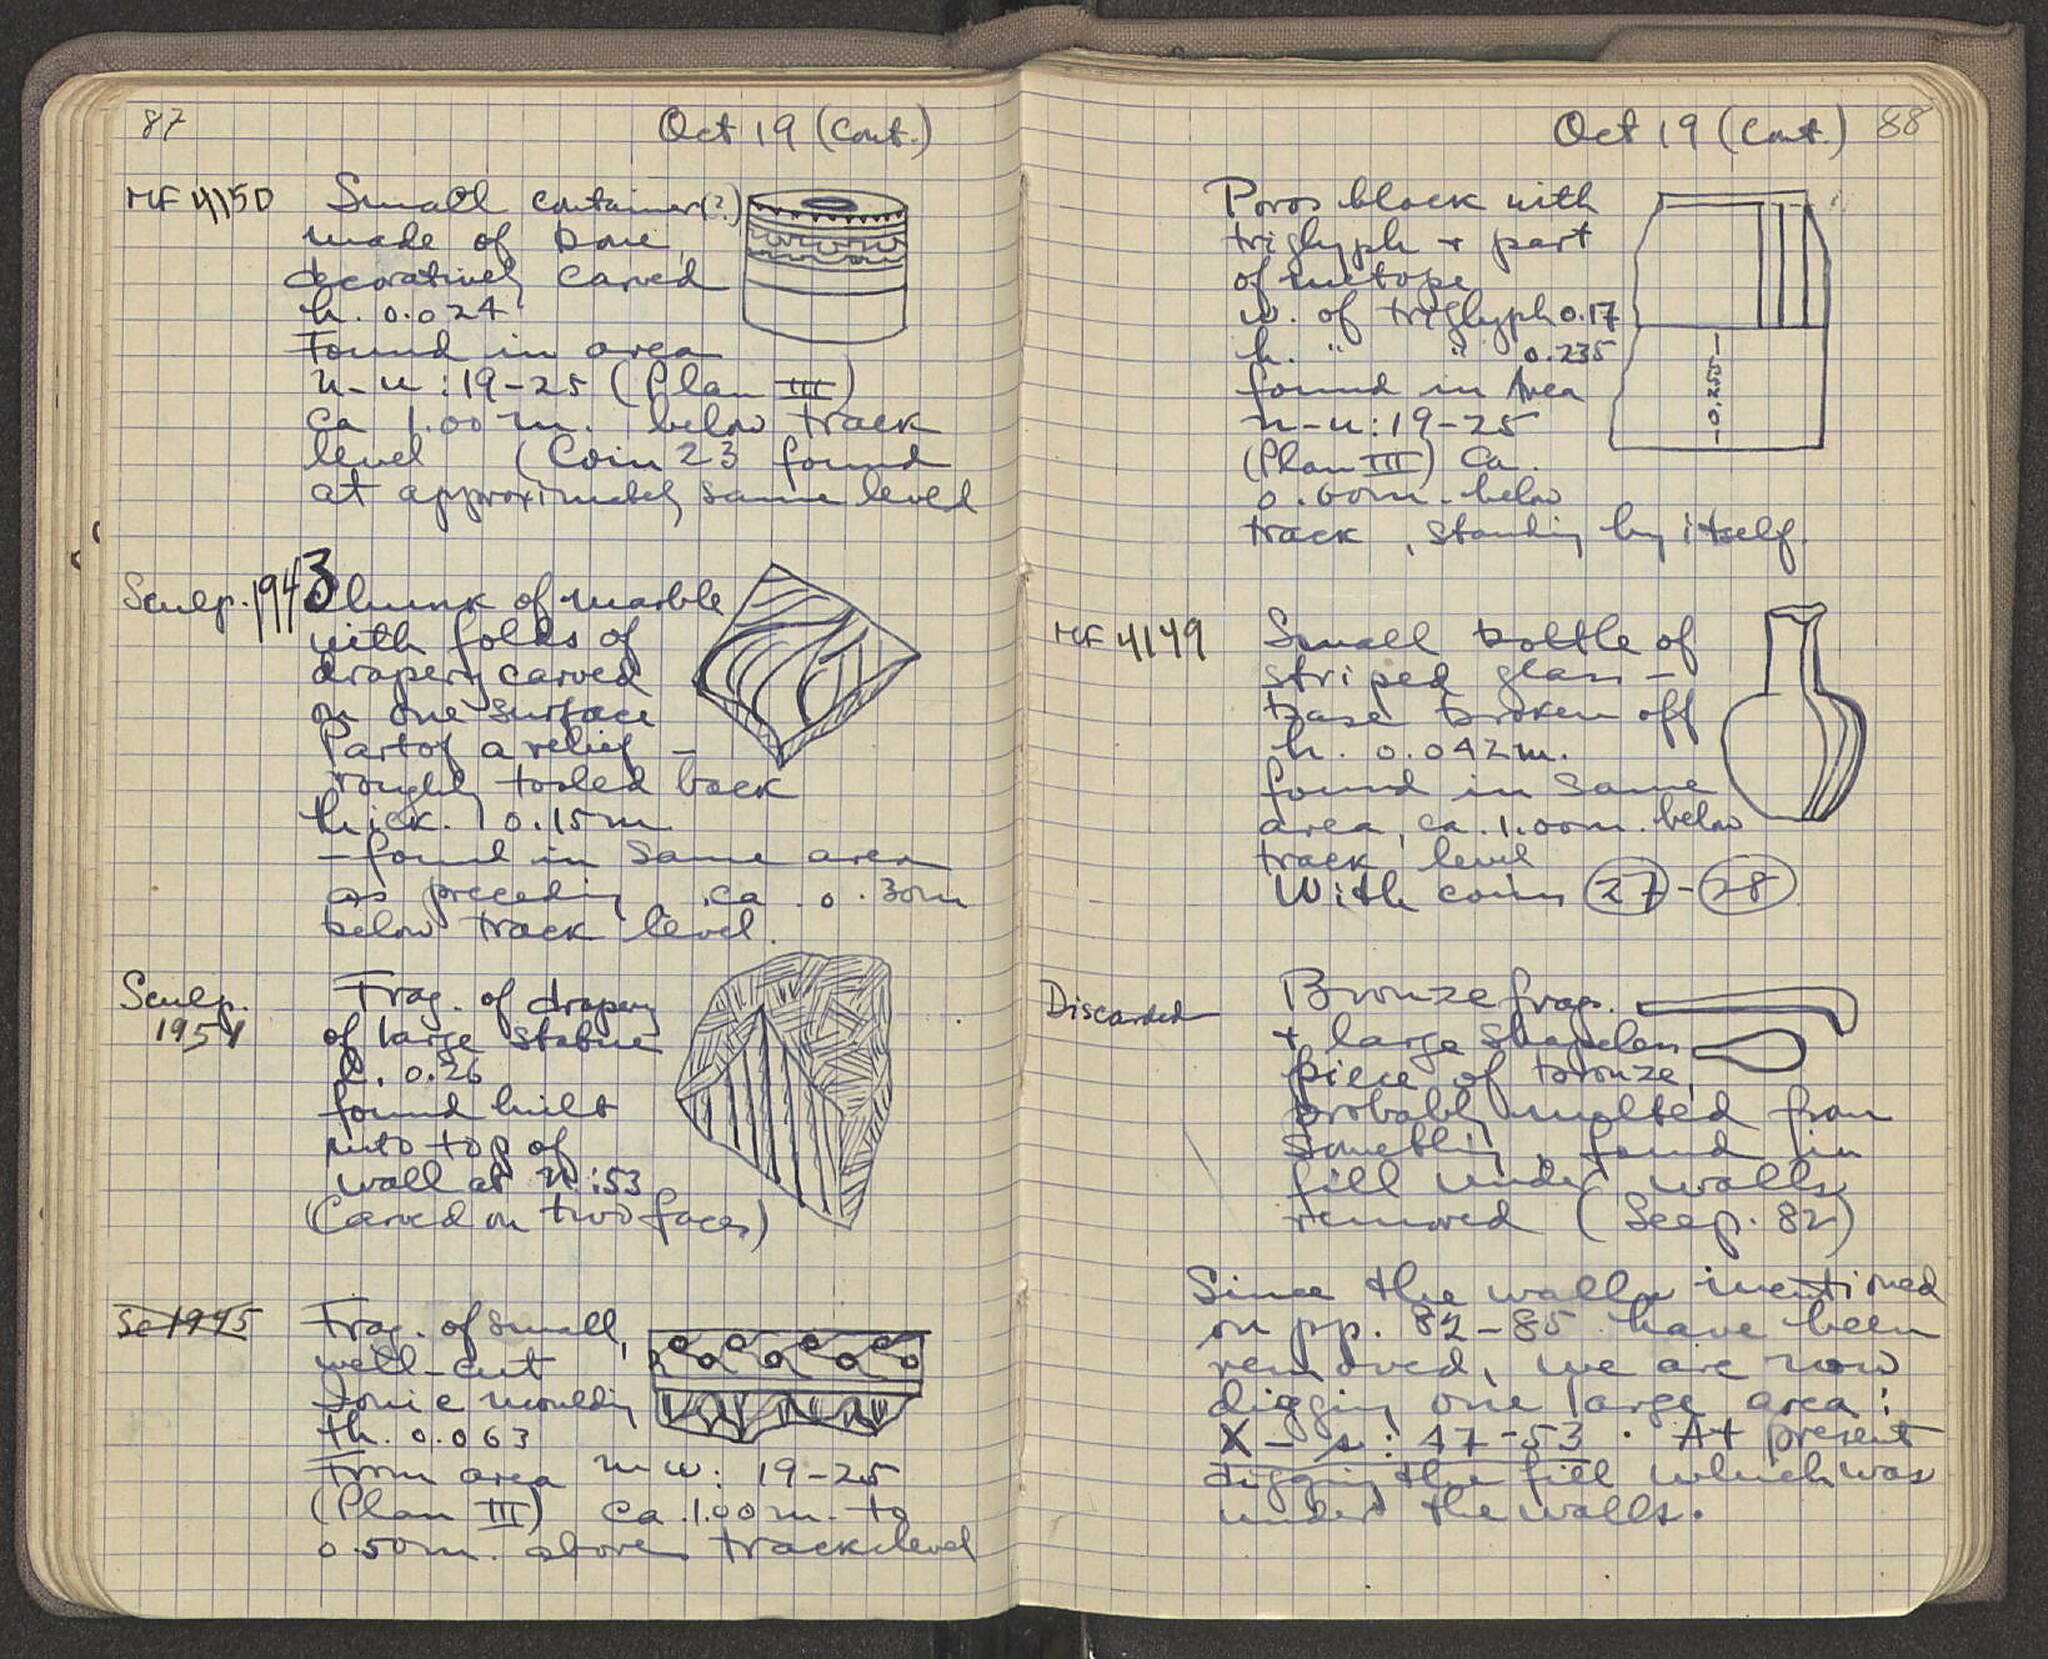 87
Oct 19 (Cont.)
MF 4150
Small container(?)
made of bone,
decoratively carved
h. 0.024
Found in area
n-u: 19-25 (Plan III)
ca 1.00 m. below track
level (Coin 23 found
at approximately same level
Sculp. 1943
Chunk of marble
with folds of
drapery carved
on one surface
Part of a relief –
roughly tooled back
thick. 0.15m
– found in same area
as preceding ca. 0.30m
below track level.
Sculp.
1954
Frag. of drapery
of large statue
l. 0.26
found built
into top of
wall at n:53
(Carved on two faces)
Sc 1945
Frag. of small,
well-cut
Ionic moulding
th. 0.063
From area 19-25
(Plan III) ca 1.00m. to
0.50m. above track level
Oct 19 (Cont.) 88
Poros block with
triglyph + part
of metope
w. of triglyph 0.17
h. " " 0.235
found in Area
n-u: 19-25
(Plan III) Ca.
0.60m. below
track, standing by itself.
-0.255-
MF 4149
Small bottle of
striped glass –
base broken off
h. 0.042m.
found in same
area, ca. 1.00m. below
track level
With coins 27 - 28
Discarded
Bronze frags.
+ large shapeless
piece of bronze,
probably melted from
something, found in
fill under walls
removed (See p. 82)
Since the walls mentioned
on pp. 82-85 have been
removed, we are now
digging one large area:
X - s: 47-53. At present
digging the fill which was
under the walls.